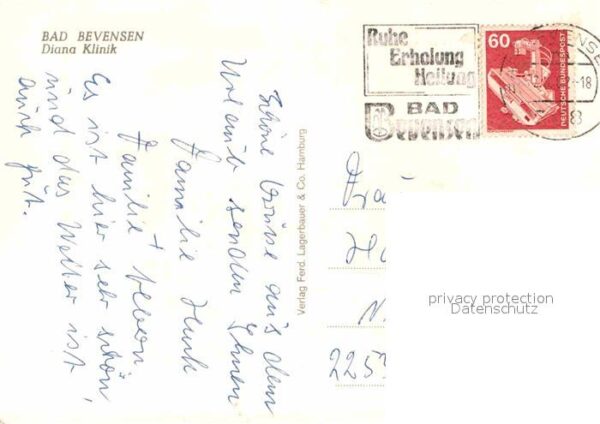 BAD BEVENSEN
Diana Klinik
Schöne Grüße aus dem
Urlaub senden Ihnen
Familie
Familie +
Es ist hier sehr schön,
und das Wetter ist
auch gut.
Verlag Ferd. Lagerbauer & Co. Hamburg
Ruhe
Erholung
Heilung
BAD
Bevensen
60
DEUTSCHE BUNDESPOST
-18
Fra
N.
225
privacy protection
Datenschutz